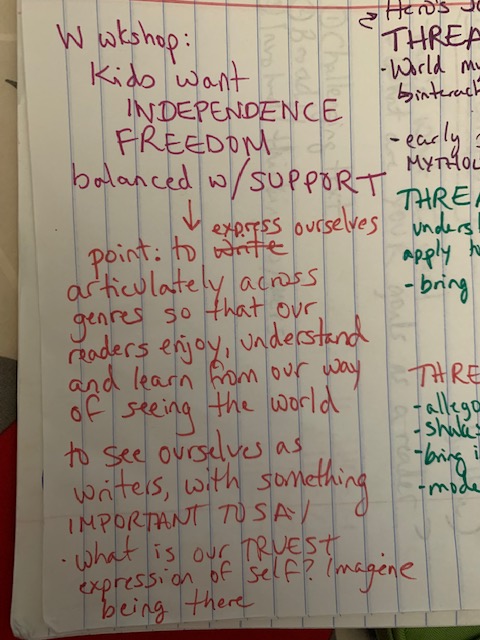 W wkshop:
Kids want
INDEPENDENCE
FREEDOM
balanced w/SUPPORT
↓ express ourselves
point: to write
articulately across
genres so that our
readers enjoy, understand
and learn from our way
of seeing the world
to see ourselves as
writers, with something
IMPORTANT TO SAY
· what is our TRUEST
expression of self? Imagine
being there
Hero's
THREA
- World my
binterac
- early
MYTHOL
THREA
unders
apply to
- bring
THRE
- allego
- shakes
- bring i
- mode